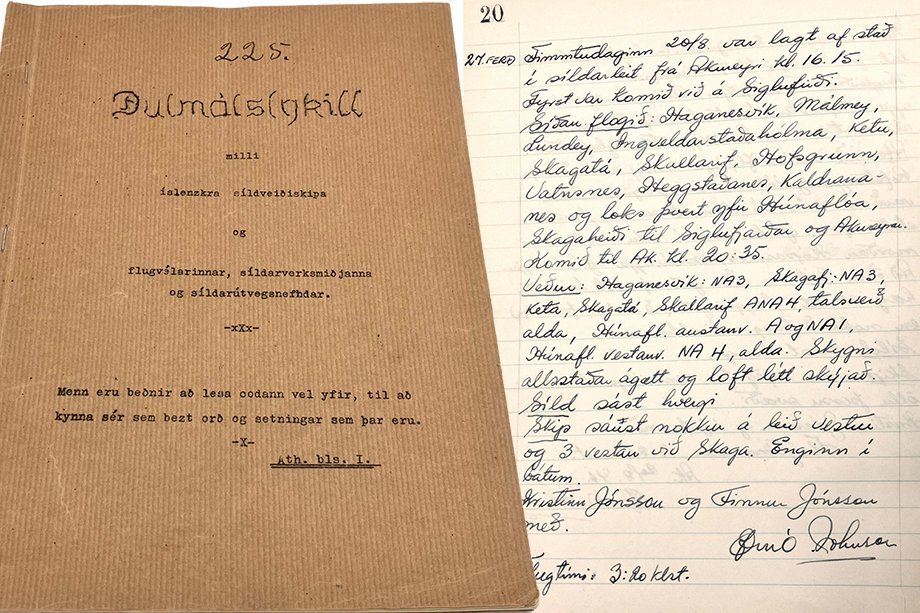 225.
Dulmálslykill
milli
íslenzkra síldveiðiskipa
og
flugvélarinnar, síldarverksmiðjanna
og síldarútvegsnefndar.
-xXx-
Menn eru beðnir að lesa codann vel yfir, til að
kynna sér sem bezt orð og setningar sem þar eru.
-X-
Ath. bls. I.
20
27. FERÐ Fimmtudaginn 20/8 var lagt af stað
í síldarleit frá Akureyri kl. 16.15.
Fyrst var komið við á Siglufirði.
Síðan flogið: Haganesvík, Málmey,
Lundey, Ingveldarstaðahólma, Ketu,
Skagatá, Skallarif, Hofsgrunn,
Vatnsnes, Heggstaðanes, Kaldrana-
nes og loks þvert yfir Húnaflóa,
Skagaheiði til Siglufjarðar og Akureyrar.
Komið til Ak. kl. 20:35.
Veður: Haganesvík: NA3, Skagafj: NA3,
Keta, Skagatá, Skallarif ANA4, talsverð
alda, Húnafl. austanv. A og NA1,
Húnafl. vestanv. NA 4, alda. Skygni
allsstaðar ágætt og loft létt skýjað.
Síld sást hvergi
Skip sáust nokkur á leið vestur
og 3 vestan við Skaga. Enginn í
bátum.
Kristinn Jónsson og Finnur Jónsson
með.
Johnson
Flugtími: 3:20 klst.